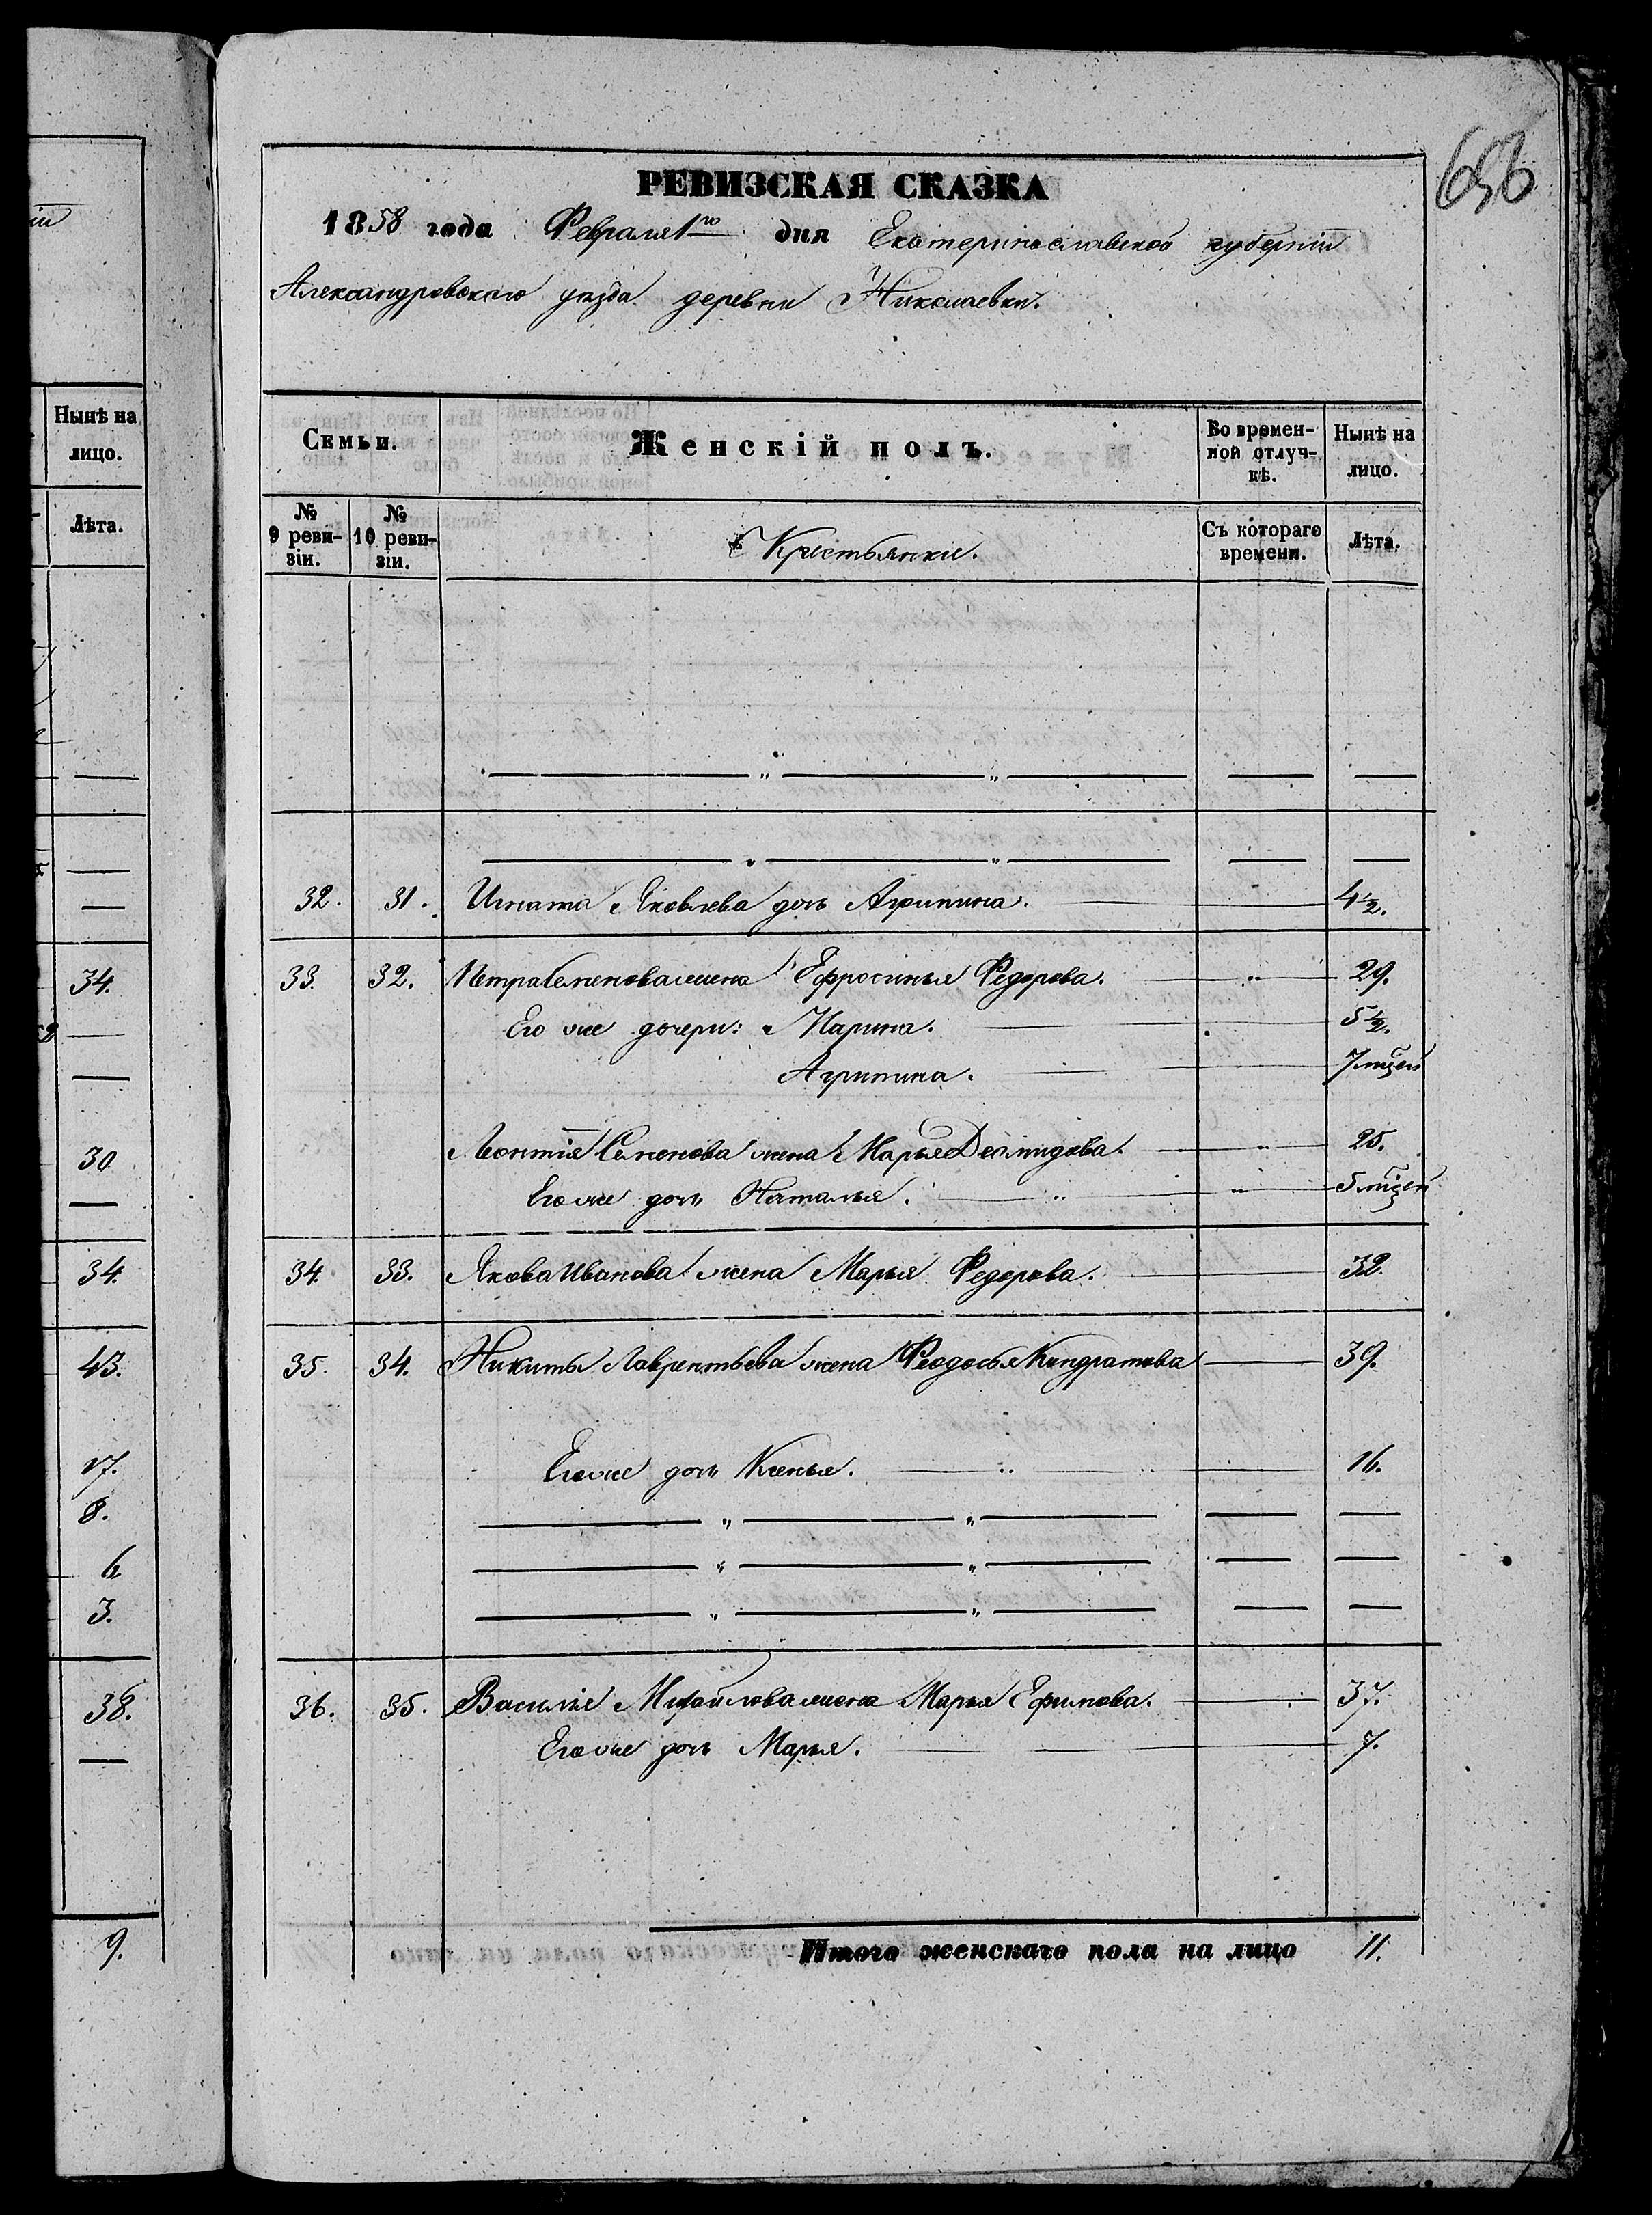 іи
Нынѣ на
лицо.
Лѣта.
34.
30
34.
43.
17.
8.
6
3.
38.
9.
656
РЕВИЗСКАЯ СКАЗКА
1858 года Февраля 1го дня Екатеринославской губерніи
Александровскаго уѣзда деревни Николаевки.
Семьи. Женскій полъ. Во времен-ной отлуч-кѣ. Ныне на лицо.
№ 9 реви-зіи. № 10 реви-зіи. Крестьянки. Съ котораго времени. Лѣта.
32. 31. Игната Яковлева дочь Агрипина. 4 1/2.
33. 32. Петра Семенова жена Ефросинья Федорова. 29.
Его же дочери: Марина. 5 1/2.
Агрипина. 7 мцей
Леонтія Семенова жена Марья Демидова. 25.
Его же дочь Наталья. 5 мцей
34. 33. Якова Иванова жена Марья Федорова. 32.
35. 34. Никиты Лаврентьева жена Феодосья Кондратова 39.
Его же дочь Ксенья. 16.
36. 35. Василія Михайлова жена Марья Ефимова. 37.
Его же дочь Марья. 7.
Итого женскаго пола на лицо 11.